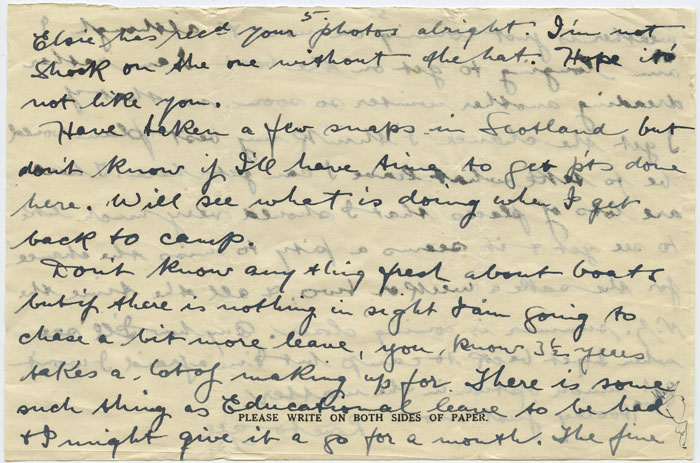 Elsie has recd your 5 photos alright. I'm not
shook on the one without the hat. Hope it's
not like you.
Have taken a few snaps in Scotland but
don't know if I'll have time to get pts done
here. Will see what is doing when I get
back to camp.
Don't know anything fresh about boats
but if there is nothing in sight I am going to
chase a bit more leave, you know 3½ years
takes a lot of making up for. There is some
such thing as Educational leave to be had
PLEASE WRITE ON BOTH SIDES OF PAPER.
& I might give it a go for a month. The fine